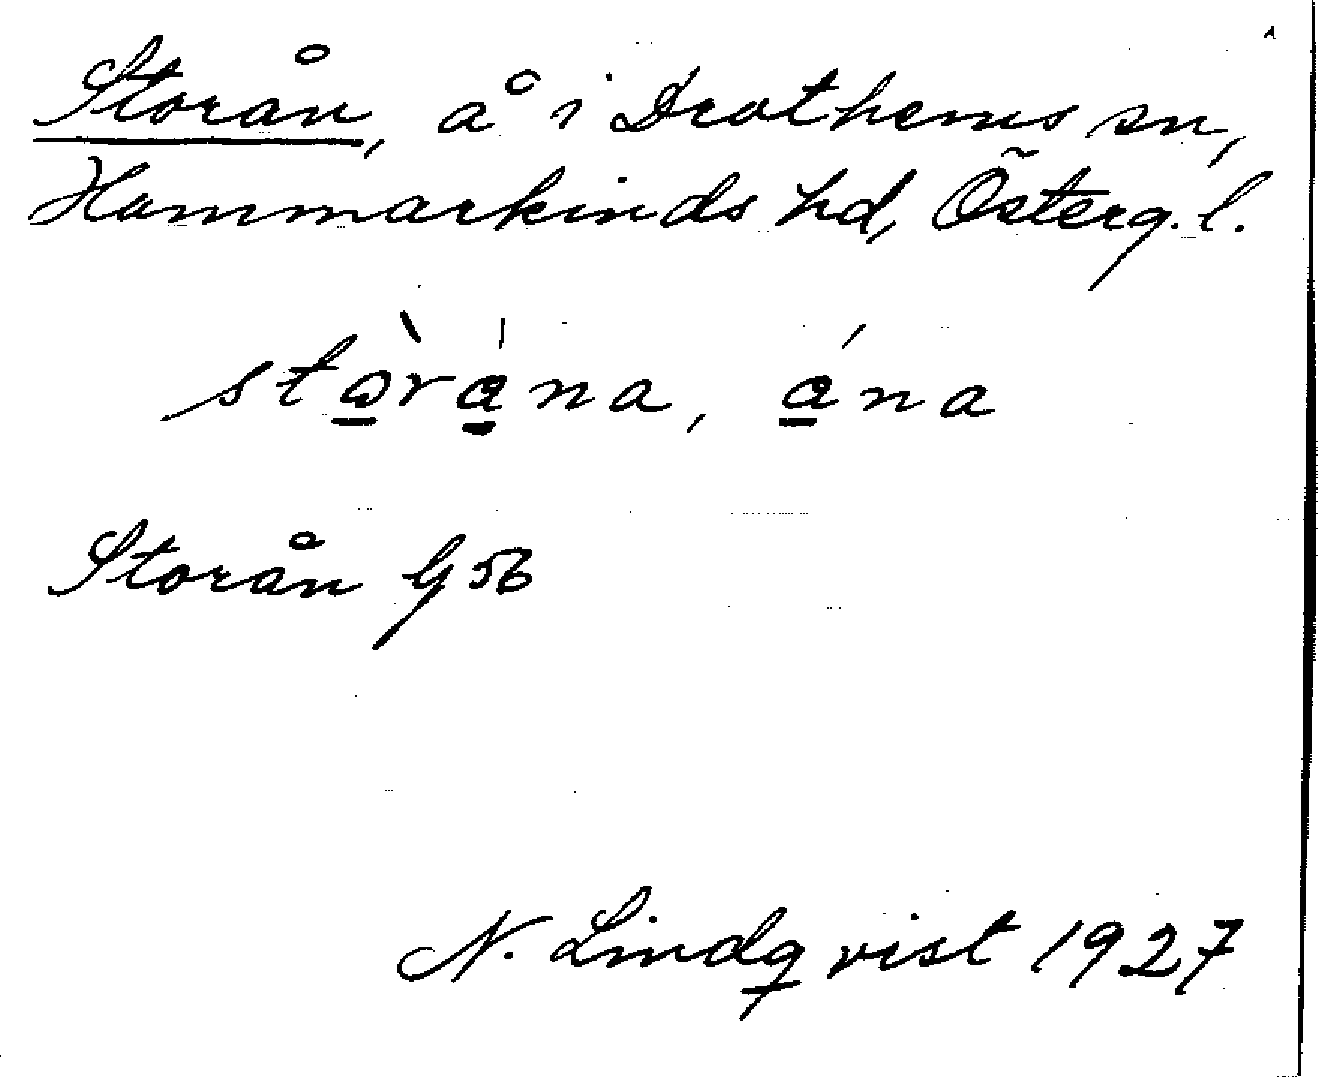 Storån, å i Drothems sn,
Hammarkinds hd, Österg. l.
stὼ̲rá̲na, á̲na
Storån G 56
N. Lindqvist 1927